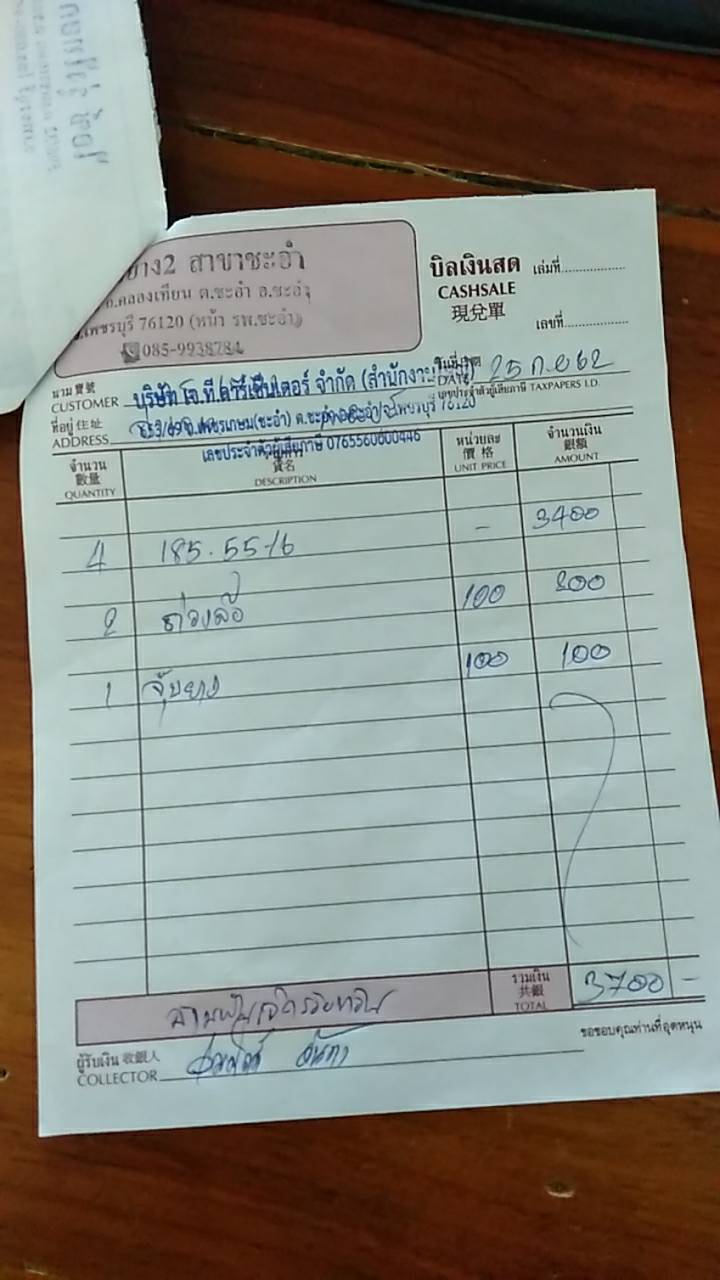 ยาง2 สาขาชะอำ
ถ.คลองเทียน ต.ชะอำ อ.ชะอำ
จ.เพชรบุรี 76120 (หน้า รพ.ชะอำ)
085-9938784
บิลเงินสด เล่มที่
CASHSALE
現兌單
เลขที่
นาม 寶號
CUSTOMER บริษัท โจ.ที.คาร์เซ็นเตอร์ จำกัด (สำนักงาน
วันที่
DATE 25 ก.ย 62
ที่อยู่ 住址
ADDRESS 853/69 ถ.เพชรเกษม(ชะอำ) ต.ชะอำ อ.ชะอำ จ.เพชรบุรี 76120
เลขประจำตัวผู้เสียภาษี TAXPAPERS I.D.
เลขประจำตัวผู้เสียภาษี 0765560600446
จำนวน 數量 QUANTITY
貨名 DESCRIPTION
หน่วยละ 價格 UNIT PRICE
จำนวนเงิน 銀額 AMOUNT
4 185.55-16 - 3400
2 ถ่วงล้อ 100 200
1 จุ๊บยาง 100 100
สามพันเจ็ดร้อยบาท
รวมเงิน 共銀 TOTAL 3700 -
ผู้รับเงิน 收銀人
COLLECTOR
ขอขอบคุณท่านที่อุดหนุน